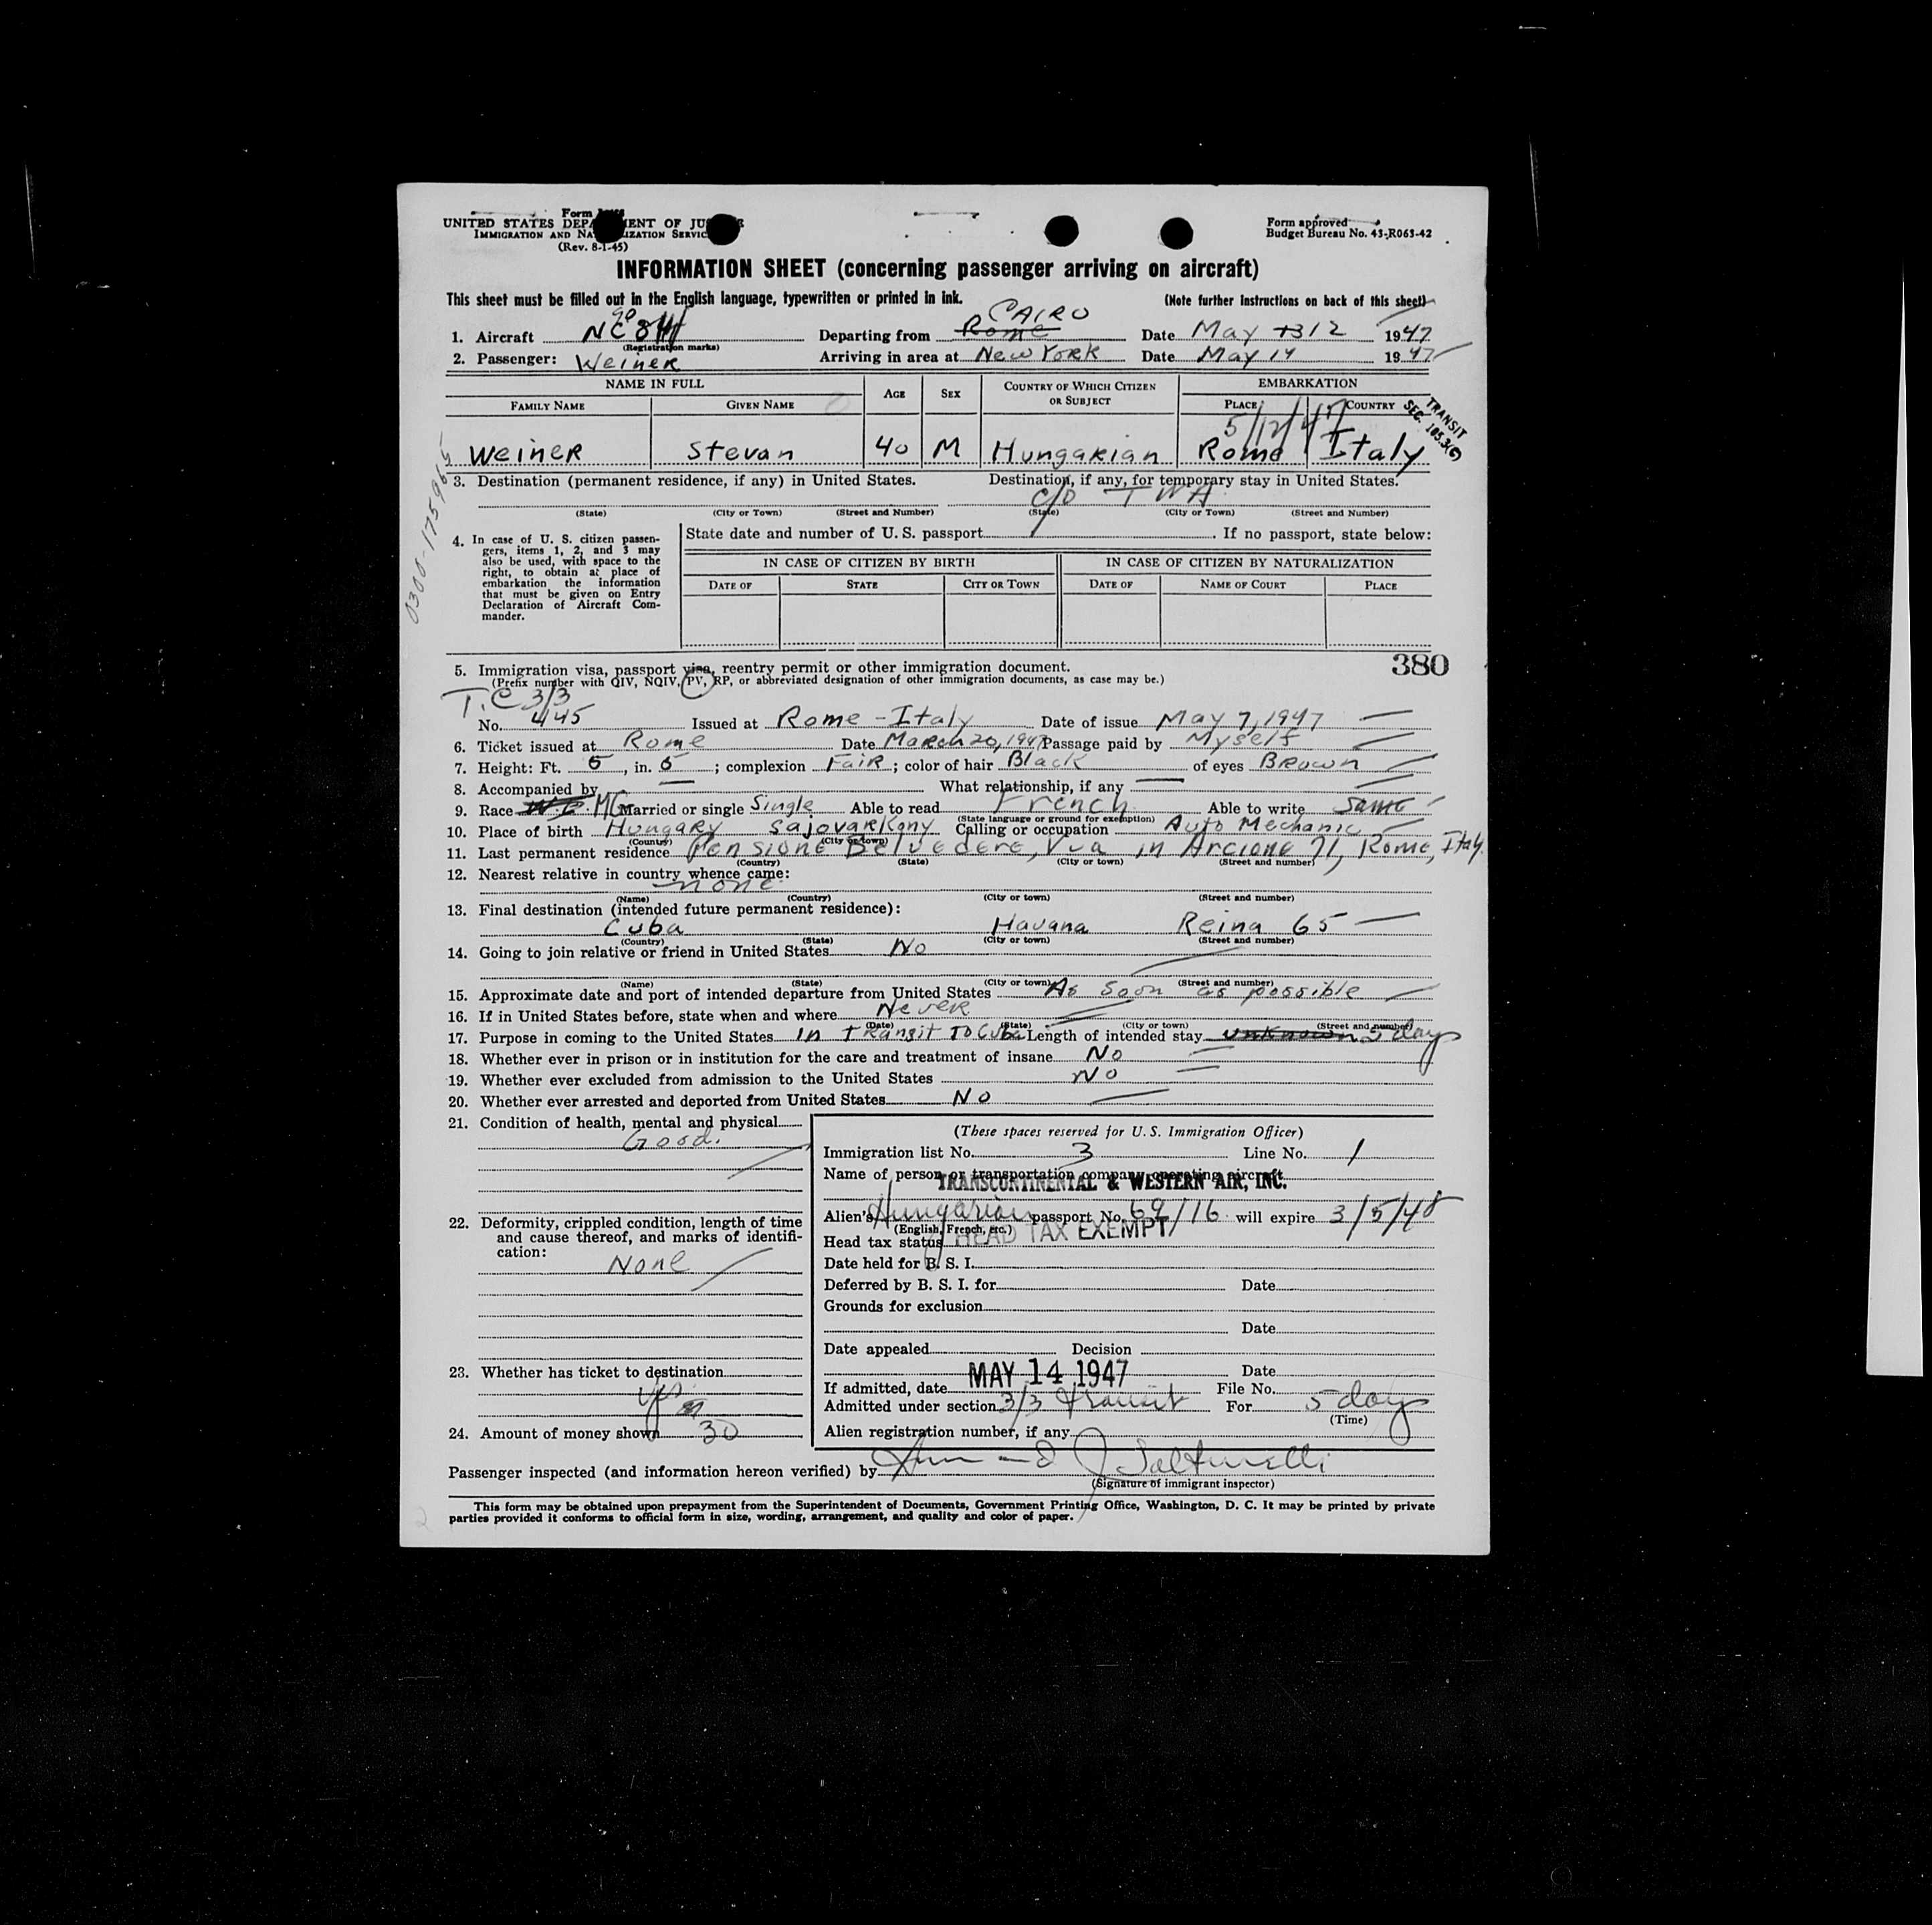 Form
UNITED STATES DEPARTMENT OF JUSTICE
IMMIGRATION AND NATURALIZATION SERVICE
(Rev. 8-1-45)
Form approved
Budget Bureau No. 43-R063-42
INFORMATION SHEET (concerning passenger arriving on aircraft)
This sheet must be filled out in the English language, typewritten or printed in ink. (Note further instructions on back of this sheet)
CAIRO
1. Aircraft NC Departing from Rome Date May 13 12 1947
(Registration marks)
2. Passenger: Weiner Arriving in area at New York Date May 14 1947
NAME IN FULL AGE SEX COUNTRY OF WHICH CITIZEN OR SUBJECT EMBARKATION
FAMILY NAME GIVEN NAME PLACE COUNTRY
TRANSIT
SEC.
5/12/47
Weiner Stevan 40 M Hungarian Rome Italy
0300-175965
3. Destination (permanent residence, if any) in United States. Destination, if any, for temporary stay in United States.
c/o TWA
(State) (City or Town) (Street and Number) (State) (City or Town) (Street and Number)
4. In case of U. S. citizen passengers, items 1, 2, and 3 may also be used, with space to the right, to obtain at place of embarkation the information that must be given on Entry Declaration of Aircraft Commander.
State date and number of U. S. passport If no passport, state below:
IN CASE OF CITIZEN BY BIRTH IN CASE OF CITIZEN BY NATURALIZATION
DATE OF STATE CITY OR TOWN DATE OF NAME OF COURT PLACE
380
5. Immigration visa, passport visa, reentry permit or other immigration document.
(Prefix number with QIV, NQIV, PV, RP, or abbreviated designation of other immigration documents, as case may be.)
T.C 3/3
No. 445 Issued at Rome - Italy Date of issue May 7, 1947
6. Ticket issued at Rome Date March 20, 1947 Passage paid by Myself
7. Height: Ft. 5, in. 5; complexion Fair; color of hair Black of eyes Brown
8. Accompanied by What relationship, if any
9. Race Married or single Single Able to read French Able to write same
(State language or ground for exemption)
10. Place of birth Hungary sajovarkony Calling or occupation Auto Mechanic
(Country) (City or town)
11. Last permanent residence Pensione Belvedere, Via in Arcione 71, Rome, Italy.
(Country) (State) (City or town) (Street and number)
12. Nearest relative in country whence came:
none
(Name) (Country) (City or town) (Street and number)
13. Final destination (intended future permanent residence):
Cuba Havana Reina 65
(Country) (State) (City or town) (Street and number)
14. Going to join relative or friend in United States No
(Name) (State) (City or town) (Street and number)
15. Approximate date and port of intended departure from United States As soon as possible
16. If in United States before, state when and where Never
(Date) (State) (City or town) (Street and number)
17. Purpose in coming to the United States In Transit To Cuba Length of intended stay unknown 5 days
18. Whether ever in prison or in institution for the care and treatment of insane No
19. Whether ever excluded from admission to the United States No
20. Whether ever arrested and deported from United States No
21. Condition of health, mental and physical
Good.
22. Deformity, crippled condition, length of time and cause thereof, and marks of identification:
None
23. Whether has ticket to destination
yes
24. Amount of money shown 30
(These spaces reserved for U. S. Immigration Officer)
Immigration list No. 3 Line No. 1
Name of person or transportation company operating aircraft
TRANSCONTINENTAL & WESTERN AIR, INC.
Alien's Hungarian passport No. 69/16 will expire 3/5/48
(English, French, etc.)
Head tax status HEAD TAX EXEMPT
Date held for B. S. I.
Deferred by B. S. I. for Date
Grounds for exclusion
Date
Date appealed Decision
Date
If admitted, date MAY 14 1947 File No.
Admitted under section 3/3 transit For 5 days
(Time)
Alien registration number, if any
Passenger inspected (and information hereon verified) by
(Signature of immigrant inspector)
This form may be obtained upon prepayment from the Superintendent of Documents, Government Printing Office, Washington, D. C. It may be printed by private
parties provided it conforms to official form in size, wording, arrangement, and quality and color of paper.